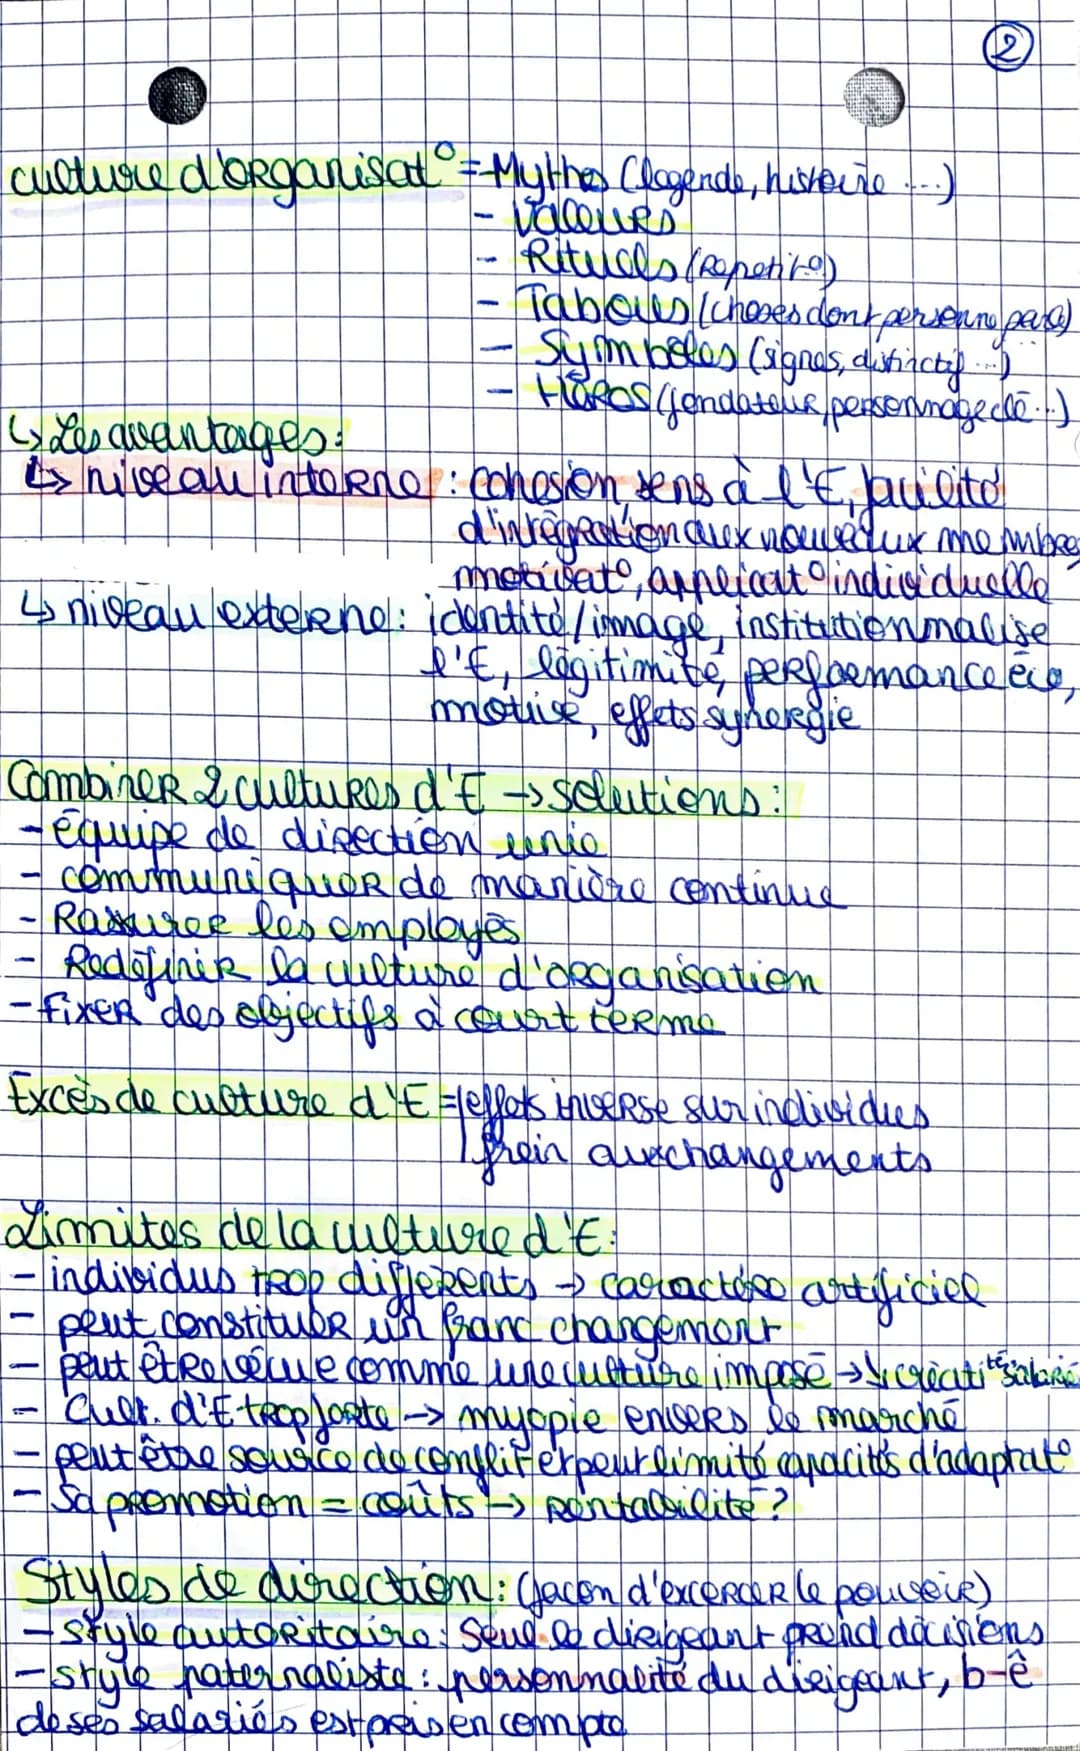 2
culture d'organisat° = - Mythes (légende, histoire ...)
- Valeurs
- Rituels (Répétit°)
- Tabous (choses dont personne parle)
- Symboles (signes, distinctif ...)
- Héros (fondateur, personnage clé ...)
↳ Les avantages :
↳ niveau interne : Cohésion, sens à l'E, facilité
d'intégration aux nouveaux membres
motivat°, appréciat° individuelle
↳ niveau externe : identité/image, institutionnalise
l'E, légitimité, performance éco,
motive, effets synergie
Combiner 2 cultures d'E → solutions :
- équipe de direction unie
- communiquer de manière continue
- Rassurer les employés
- Redéfinir la culture d'organisation
- fixer des objectifs à court terme
Excès de culture d'E = effets inverse sur individus
frein aux changements
Limites de la culture d'E :
- individus trop différents → caractère artificiel
- peut constituer un franc changement
- peut être vécue comme une culture imposé → ↓ créati^té salarié
- Cult. d'E trop forte → myopie envers le marché
- peut être source de conflit et peut limité capacités d'adaptat°
- Sa promotion = coûts → rentabilité ?
Styles de direction : (façon d'excercer le pouvoir)
- style autoritaire : Seul le dirigeant prend décisions
- style paternaliste : personnalité du dirigeant, b-ê
de ses salariés est pris en compte